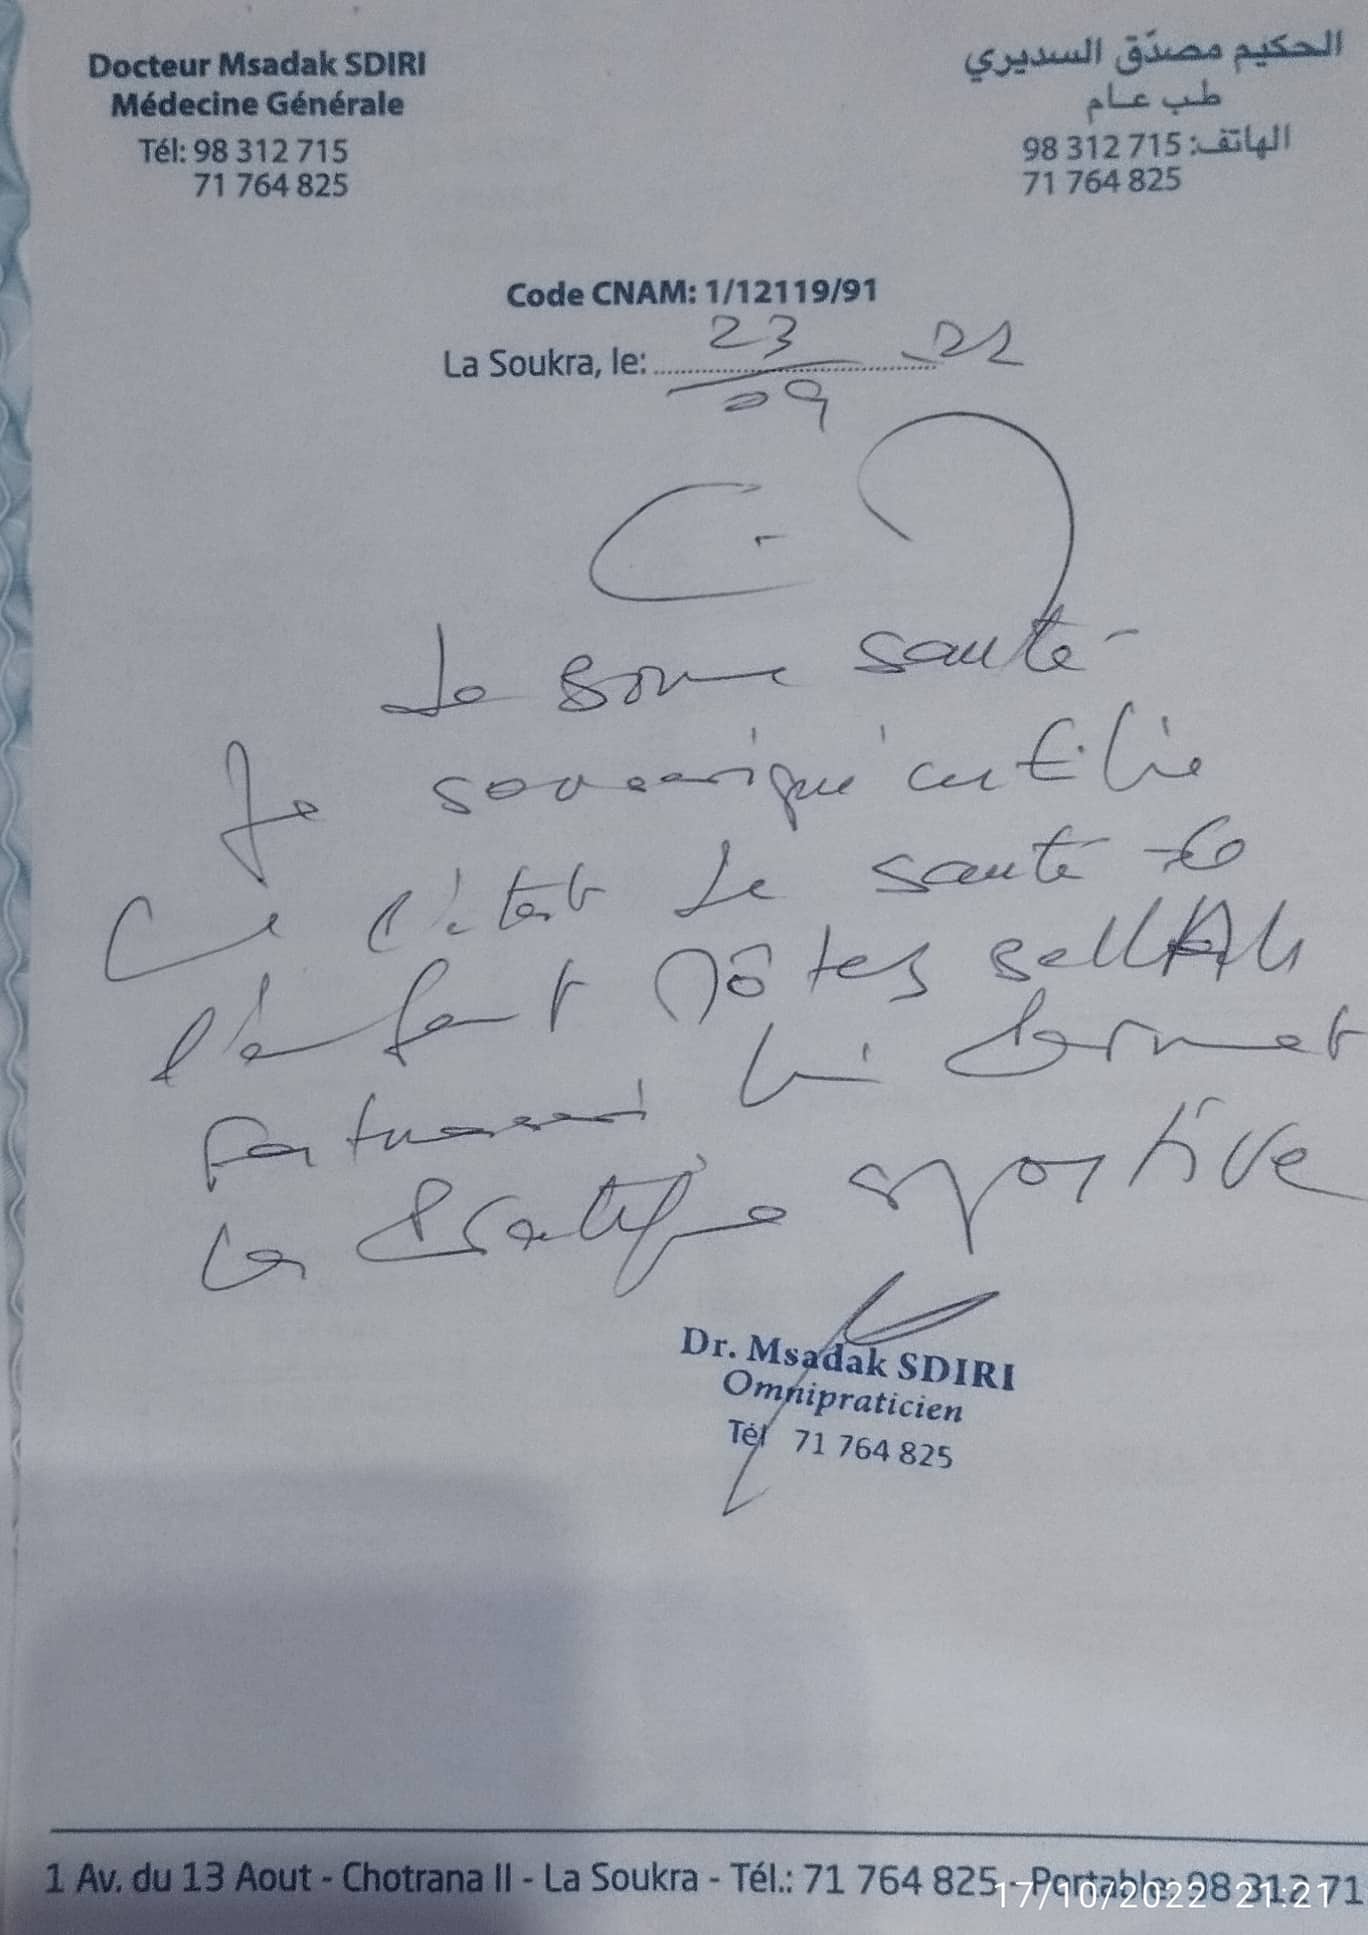 Docteur Msadak SDIRI
Médecine Générale
Tél: 98 312 715
71 764 825
الحكيم مصدّق السديري
طب عام
الهاتف: 715 312 98
71 764 825
Code CNAM: 1/12119/91
La Soukra, le: 23/09 22
de bonne santé
Je soussigné certifie
que l'état de santé de
l'enfant
lui permet
la pratique sportive
Dr. Msadak SDIRI
Omnipraticien
Tél 71 764 825
1 Av. du 13 Aout - Chotrana II - La Soukra - Tél.: 71 764 825 - Portable: 98 312 71
17/10/2022 21:21